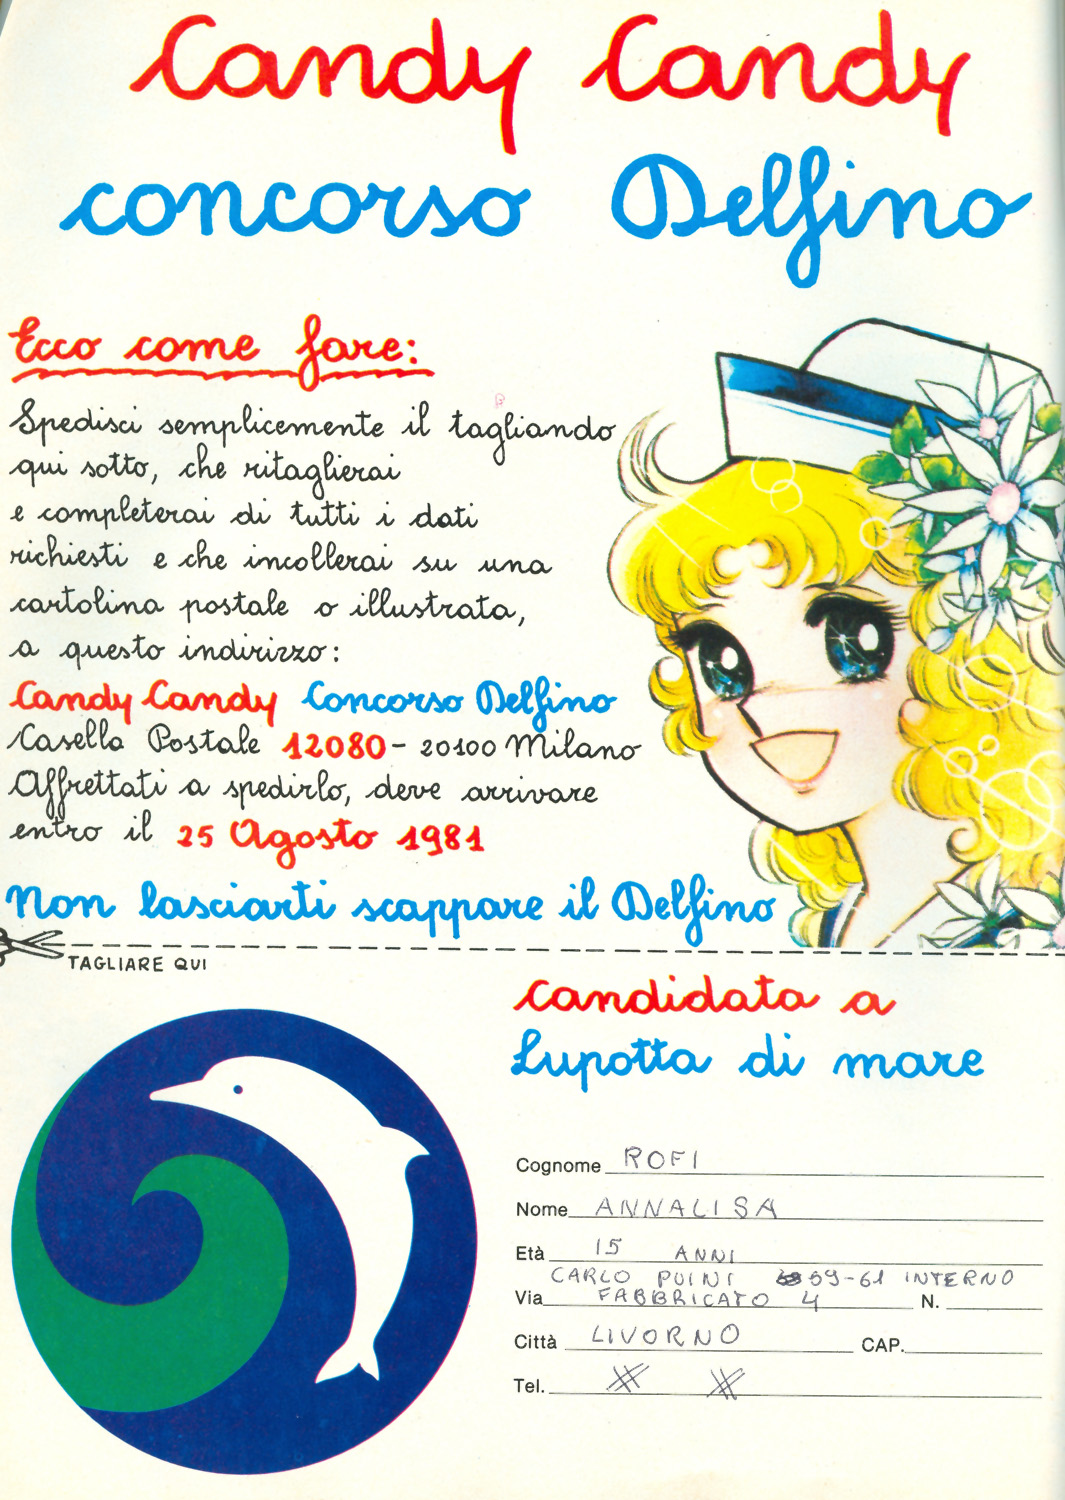 Candy Candy
concorso Delfino
Ecco come fare:
Spedisci semplicemente il tagliando
qui sotto, che ritaglierai
e completerai di tutti i dati
richiesti e che incollerai su una
cartolina postale o illustrata,
a questo indirizzo:
Candy Candy Concorso Delfino
Casella Postale 12080 - 20100 Milano
Affrettati a spedirlo, deve arrivare
entro il 25 Agosto 1981
Non lasciarti scappare il Delfino
TAGLIARE QUI
Candidata a
Lupotta di mare
Cognome ROFI
Nome ANNALISA
Età 15 ANNI
CARLO PUINI 59-61 INTERNO
Via FABBRICATO 4 N.
Città LIVORNO CAP.
Tel.